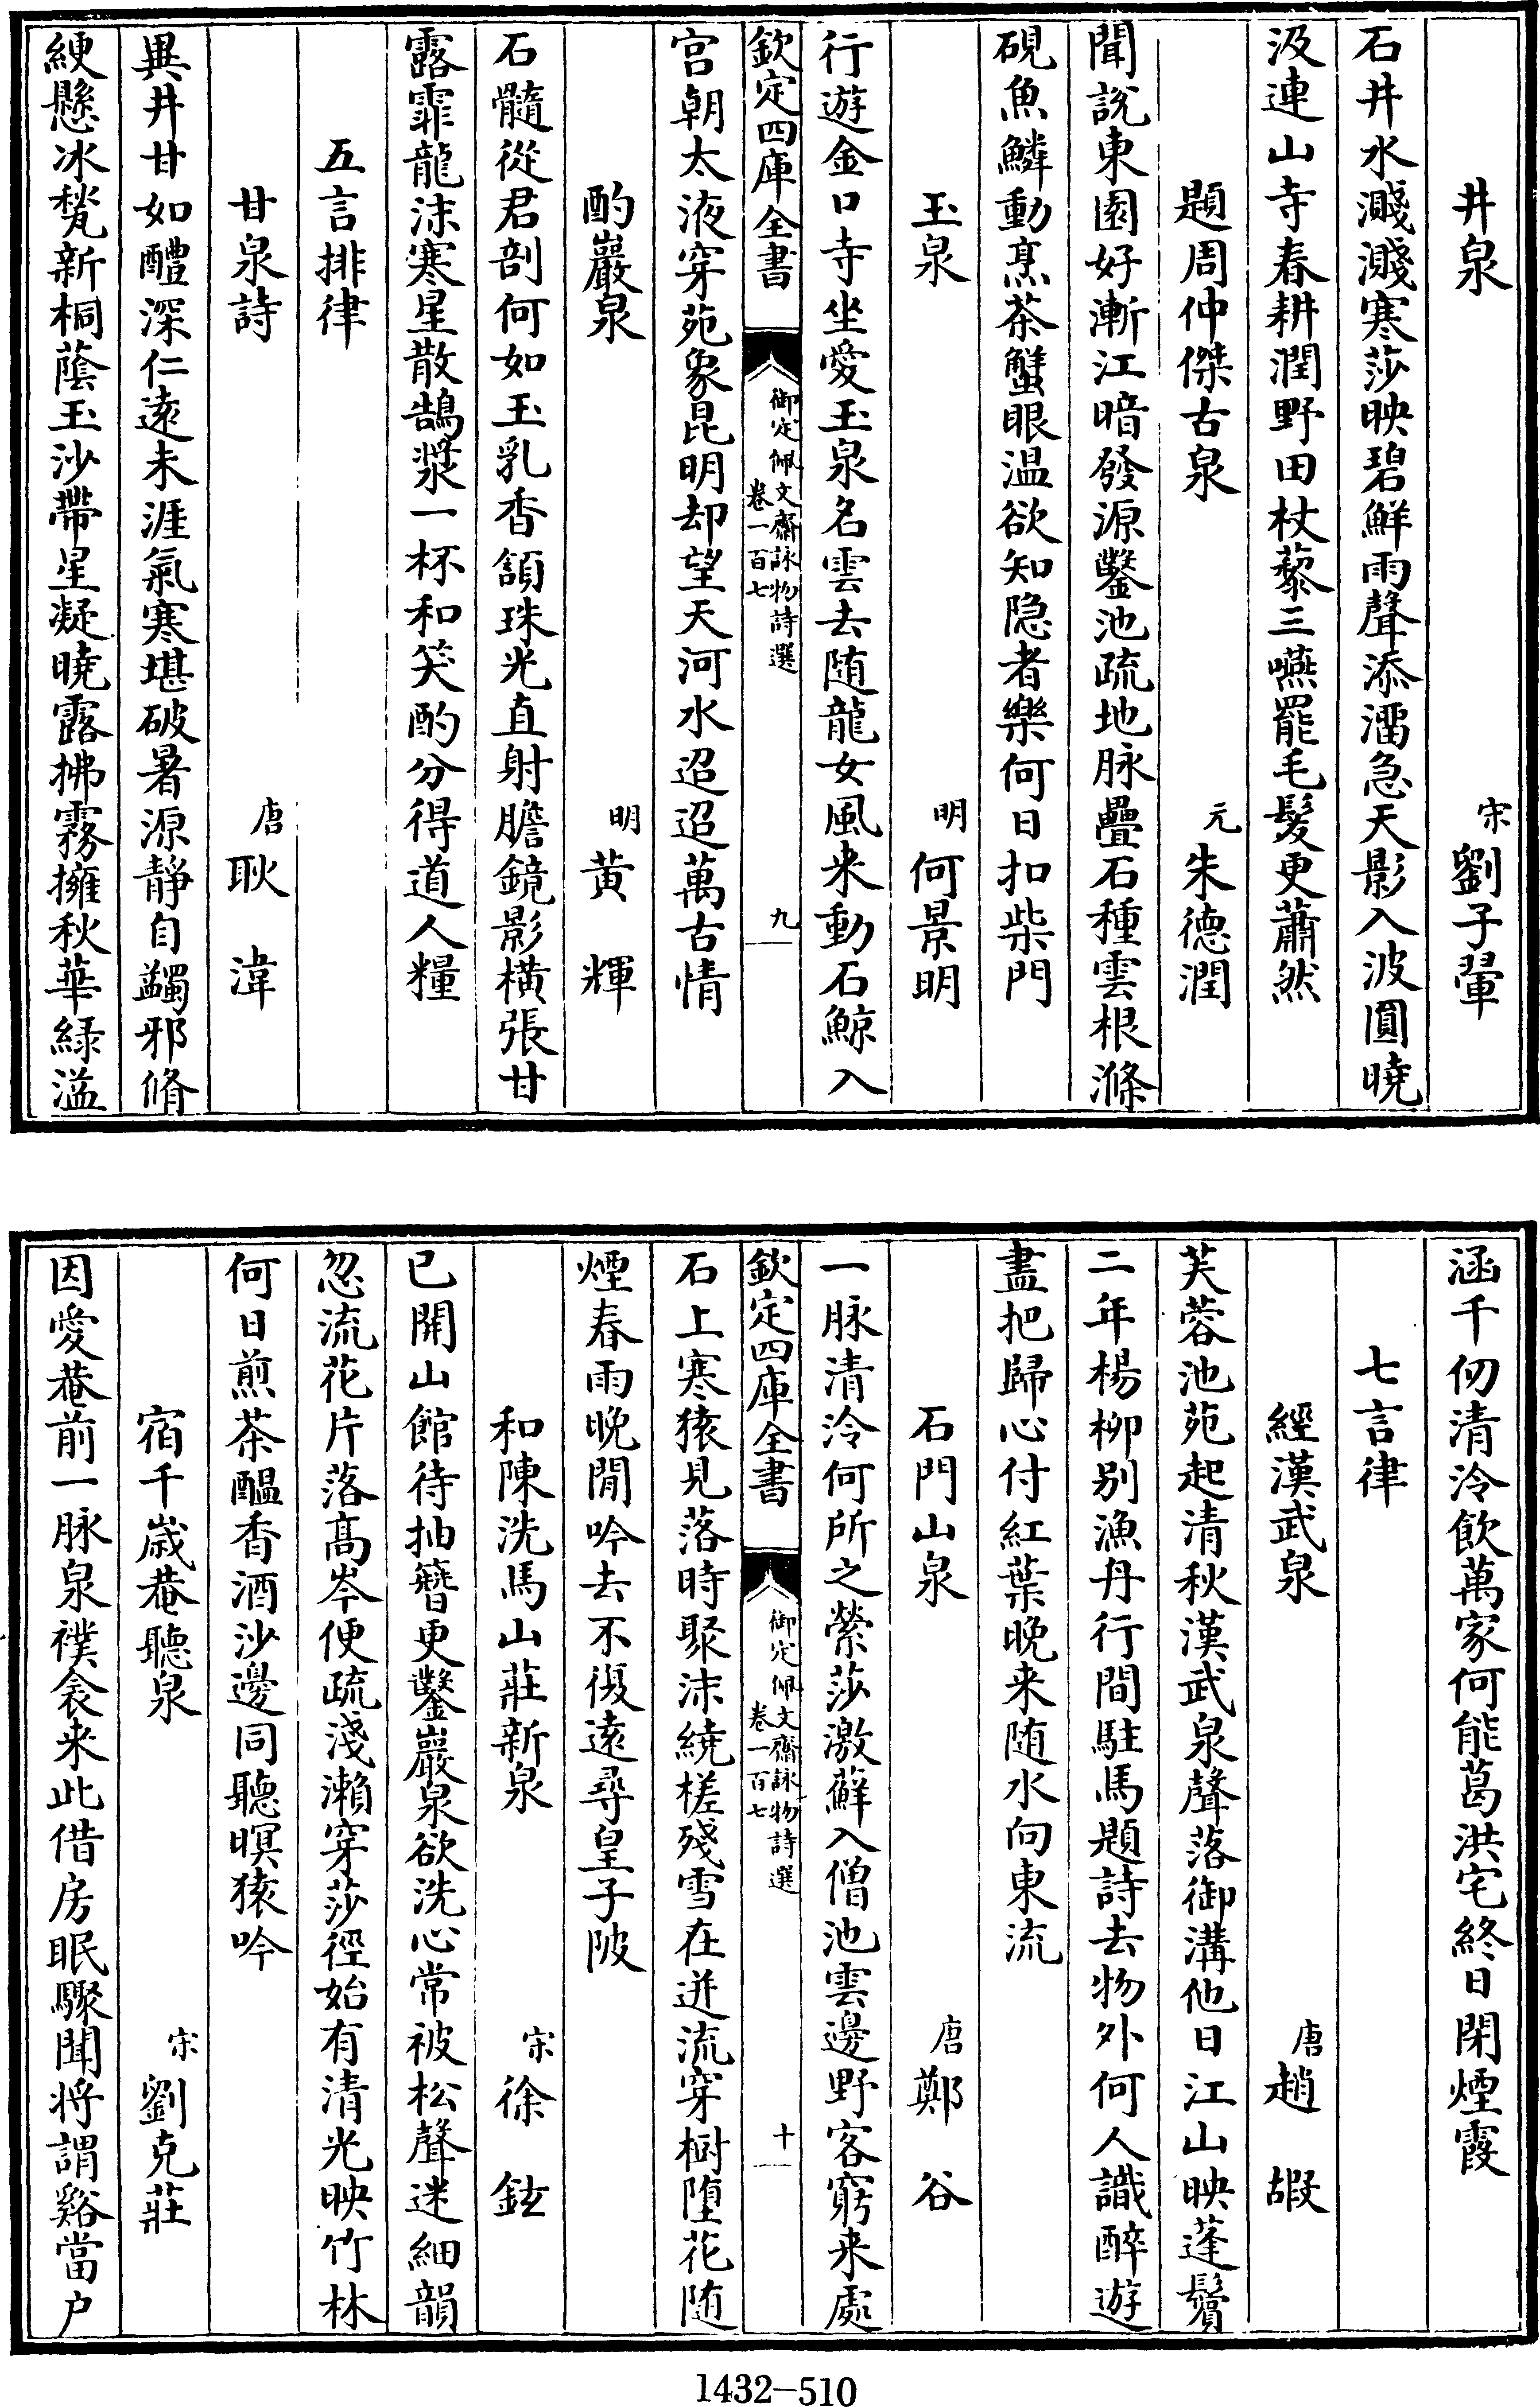 井泉 宋劉子翬
石井水濺濺寒莎映碧鮮雨聲添澑急天影入波圓曉
汲連山寺春耕潤野田杖藜三嚥罷毛髮更蕭然
題周仲傑古泉 元朱德潤
聞說東園好漸江暗發源鑿池疏地脉疊石種雲根滌
硯魚鱗動烹茶蟹眼温欲知隐者樂何日扣柴門
玉泉 明何景明
行遊金口寺坐愛玉泉名雲去随龍女風来動石鯨入
欽定四庫全書 御定佩文齋詠物詩選 卷一百七 九
宫朝太液穿苑象昆明却望天河水迢迢萬古情
酌巖泉 明黄輝
石髓從君剖何如玉乳香頷珠光直射膽鏡影横張甘
露霏龍沫寒星散鵠漿一杯和笑酌分得道人糧
五言排律
甘泉詩 唐耿湋
異井甘如醴深仁遠未涯氣寒堪破暑源静自蠲邪脩
綆懸冰甃新桐蔭玉沙帶星凝曉露拂霧擁秋華緑溢
涵千仞清泠飲萬家何能葛洪宅終日閉煙霞
七言律
經漢武泉 唐趙嘏
芙蓉池苑起清秋漢武泉聲落御溝他日江山映蓬鬢
二年楊柳别漁舟行間駐馬題詩去物外何人識醉遊
盡把歸心付紅葉晚来随水向東流
石門山泉 唐鄭谷
一脉清泠何所之縈莎激蘚入僧池雲邊野客窮来處
欽定四庫全書 御定佩文齋詠物詩選 卷一百七 十
石上寒猿見落時聚沫繞槎殘雪在迸流穿樹堕花随
煙春雨晚閒吟去不復遠尋皇子陂
和陳洗馬山莊新泉 宋徐鉉
已開山館待抽簪更鑿巖泉欲洗心常被松聲迷細韻
忽流花片落髙岑便疏淺瀨穿莎徑始有清光映竹林
何日煎茶醖香酒沙邊同聽暝猿吟
宿千歲菴聽泉 宋劉克莊
因愛菴前一脉泉襆衾来此借房眠驟聞將謂谿當户
1432—510